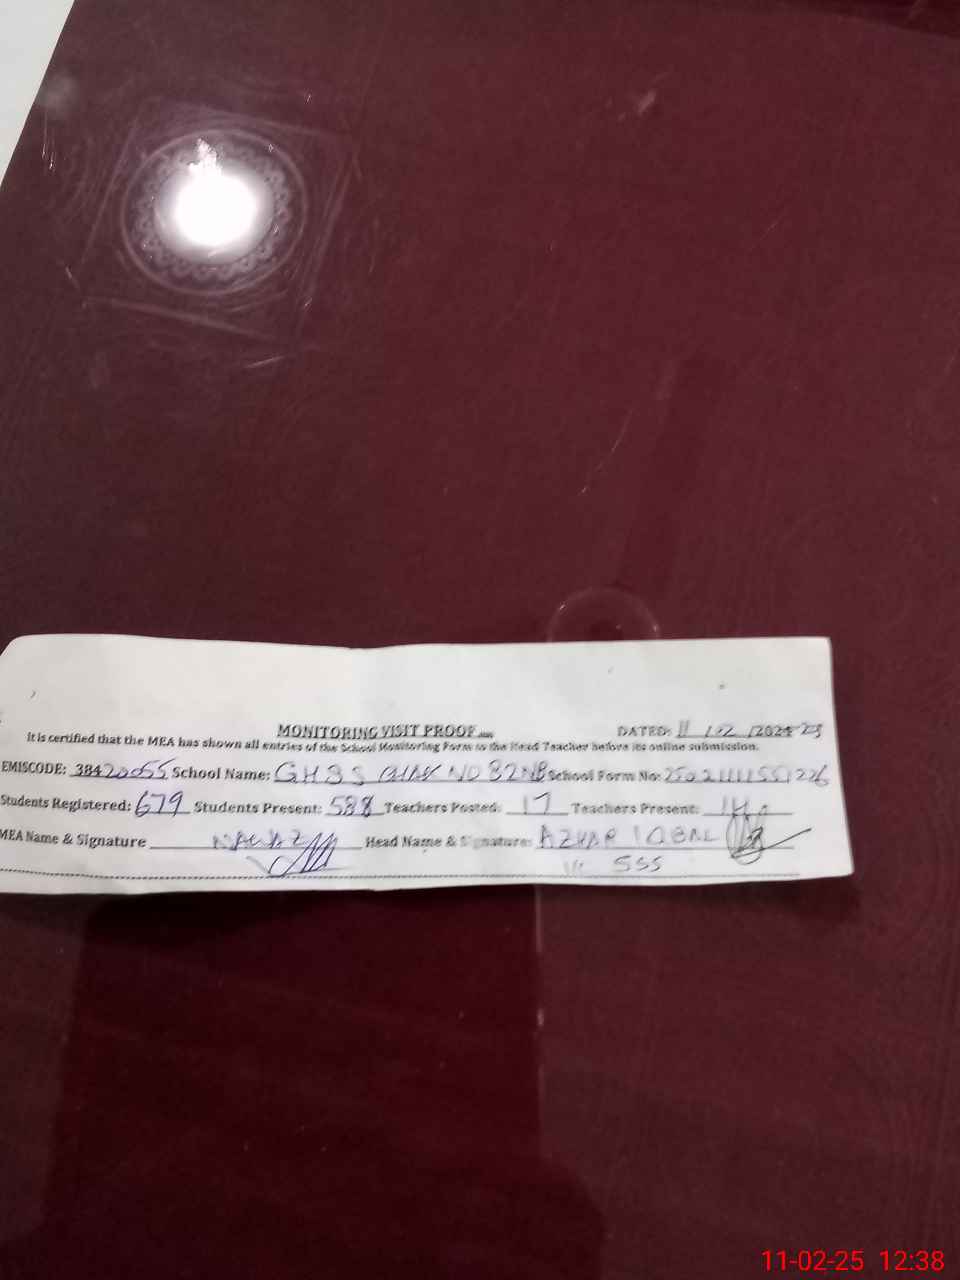 MONITORING VISIT PROOF DATED: 11 / 02 /2024 25
It is certified that the MEA has shown all entries of the School Monitoring Form to the Head Teacher before its online submission.
EMISCODE: 38420055 School Name: GHSS CHAK NO 82NB School Form No:
Students Registered: 679 Students Present: 588 Teachers Posted: 17 Teachers Present: 14
MEA Name & Signature NAWAZ Head Name & Signature: AZHAR IQBAL
SSS
11-02-25 12:38